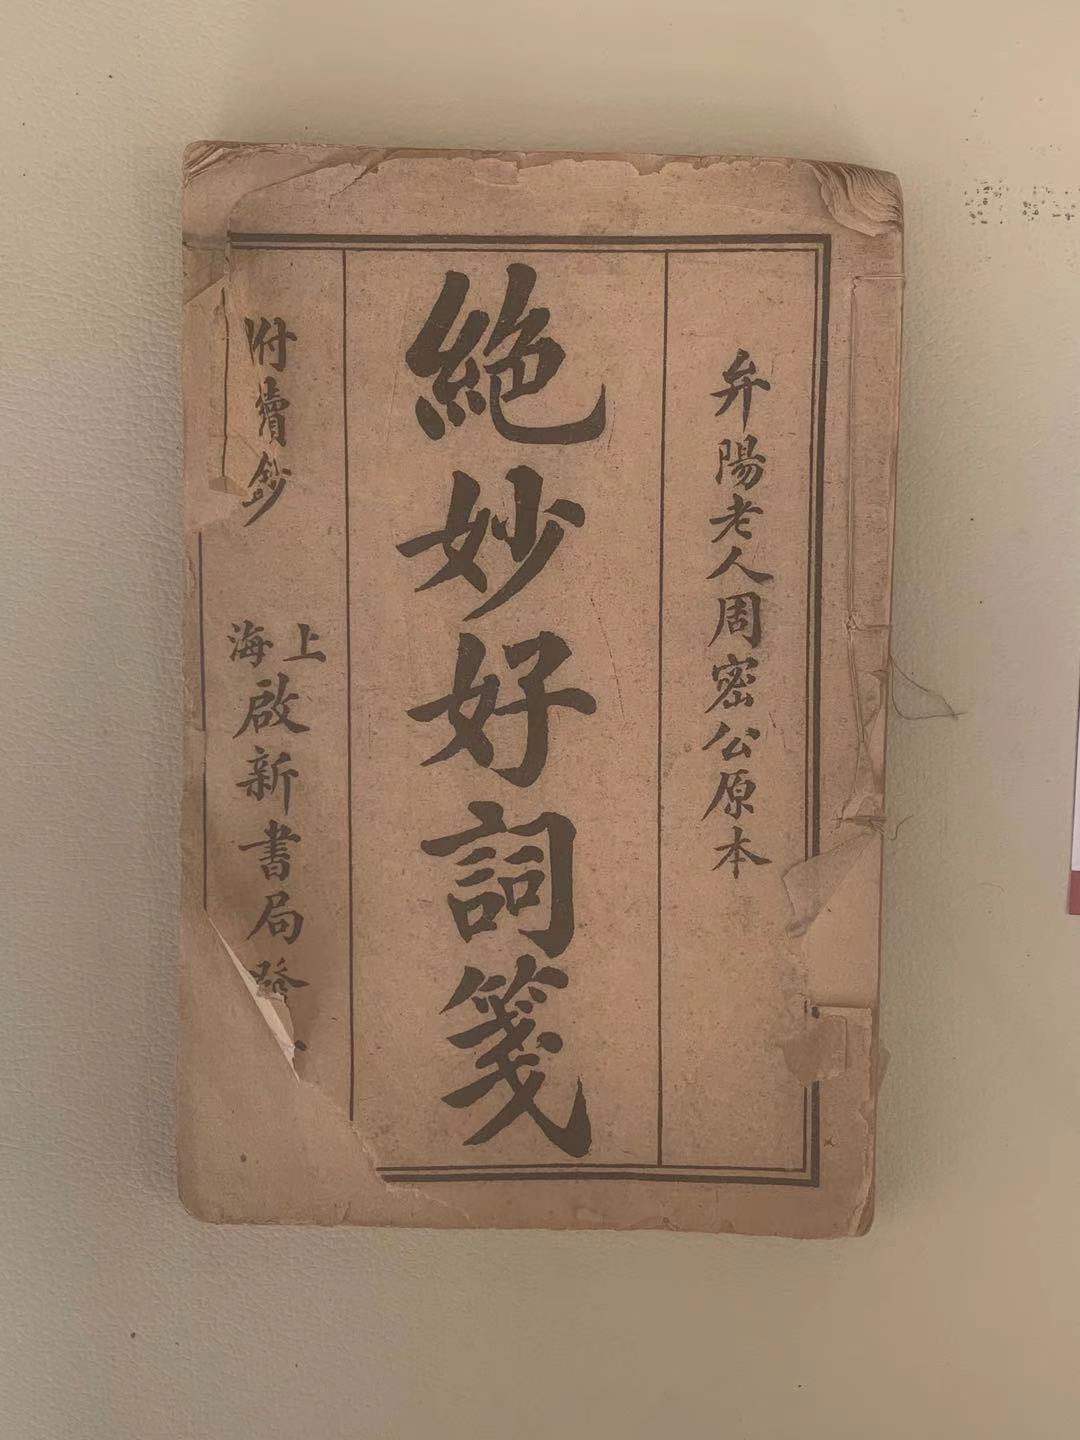 弁陽老人周密公原本
絶妙好詞箋
附續鈔
上海啟新書局發